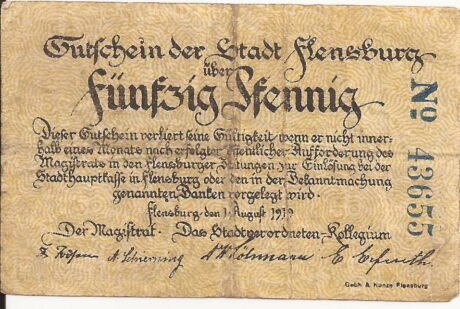 Gutschein der Stadt Flensburg
über
Fünfzig Pfennig
Dieser Gutschein verliert seine Gültigkeit wenn er nicht inner-
halb eines Monats nach erfolgter öffentlicher Aufforderung des
Magistrats in den Flensburger Zeitungen zur Einlösung bei der
Stadthauptkasse in Flensburg oder den in der Bekanntmachung
genannten Banken vorgelegt wird.
Flensburg den 1. August 1919
Der Magistrat. Das Stadtverordneten-Kollegium
Gebh. & Kunze Flensburg
No 43655